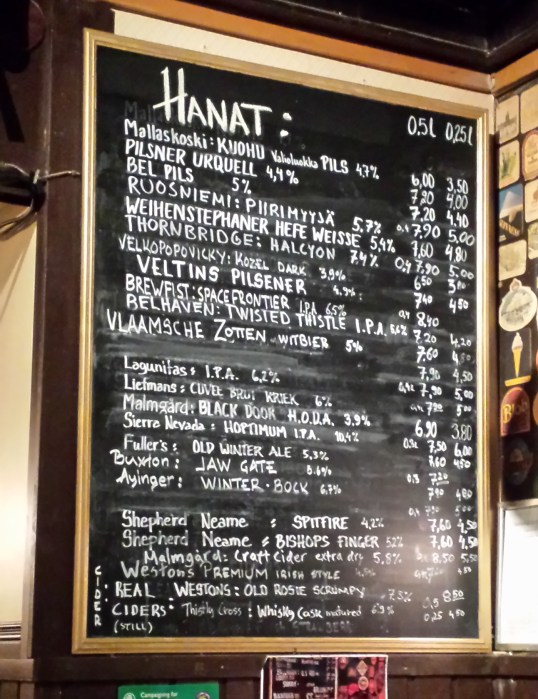 HANAT: 0,5l 0,25l
Mallaskoski: KUOHU Valioluokka PILS 4,7% 6,00 3,50
PILSNER URQUELL 4,4% 7,20 4,00
BEL PILS 5% 7,20 4,40
RUOSNIEMI: PIIRIMYYJÄ 5,7% 0,4 7,90 5,00
WEIHENSTEPHANER HEFE WEISSE 5,4% 7,60 4,80
THORNBRIDGE: HALCYON 7,4% 0,4 7,90 5,00
VELKOPOPOVICKY: KOZEL DARK 3,9% 6,50
VELTINS PILSENER 7,40 4,50
BREWFIST: SPACE FRONTIER IPA 6,5% 8,40
BELHAVEN: TWISTED THISTLE I.P.A. 5,6% 7,20 4,20
VLAAMSCHE ZOTTEN WITBIER 5% 7,60
Lagunitas: I.P.A. 6,2% 7,90 4,50
Liefmans: CUVEE BRUT KRIEK 6% 7,90 5,00
Malmgård: BLACK DOOR H.O.D.A. 3,9%
Sierra Nevada: HOPTIMUM I.P.A. 10,4% 6,90 3,80
Fuller's: OLD WINTER ALE 5,3% 7,50 6,00
Buxton: JAW GATE 7,60 4,50
Ayinger: WINTER-BOCK 6,7% 0,3 7,20
Shepherd Neame: SPITFIRE 4,2% 7,60 4,50
Shepherd Neame: BISHOPS FINGER 5,2% 7,60 4,50
Malmgård: Craft Cider extra dry 5,8% 8,50 5,50
Westons PREMIUM IRISH STYLE
CIDER
REAL WESTONS: OLD ROSIE SCRUMPY 7,3% 0,5 8,50
CIDERS: Thistly Cross: Whisky Cask matured 0,25 4,50
(STILL)
Campaigning for